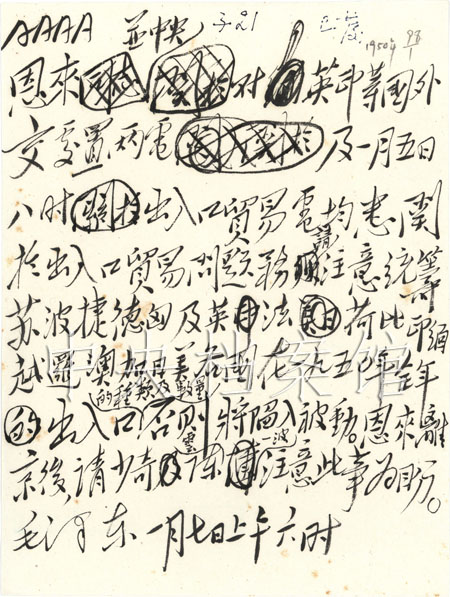 AAAA 並中央
1950年
恩來 对 英印等國外
交處置丙電 及一月五日
八时 出入口貿易電均悉関
於出入口貿易問題務請注意統籌
苏波捷德匈及英 法 荷比印緬
越 澳 美各國在一九五〇年全年
的種類及數量
出入口否則將陷入被動。恩來離
京後請少奇及陳雲一波注意此事為盼。
毛泽东 一月七日上午六时
中央档案馆